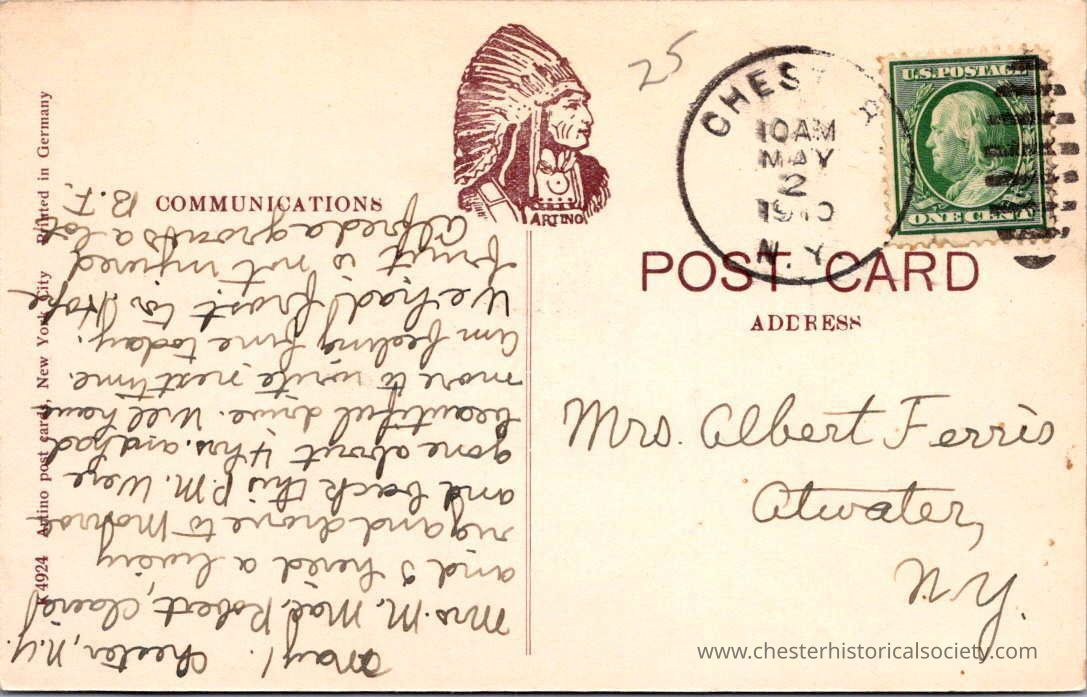 25
CHES R
10AM
MAY
2
1910
N.Y.
U.S. POSTAGE
ONE CENT
ARTINO
POST CARD
COMMUNICATIONS
ADDRESS
Mrs. Albert Ferris
Atwater,
N.Y.
Chester, N.Y.
May 1.
Mrs. M. Mac, Robert, Claire
and I hired a livery
rig and drove to Monroe
and back this P.M. Were
gone about 4 hrs. and had
beautiful drive. Will have
more to write next time.
Am feeling fine today.
We had frost for Hope
fruit is not injured
Alfreda grows a lot
B.F.
K4924 Artino post cards, New York City Printed in Germany
www.chesterhistoricalsociety.com